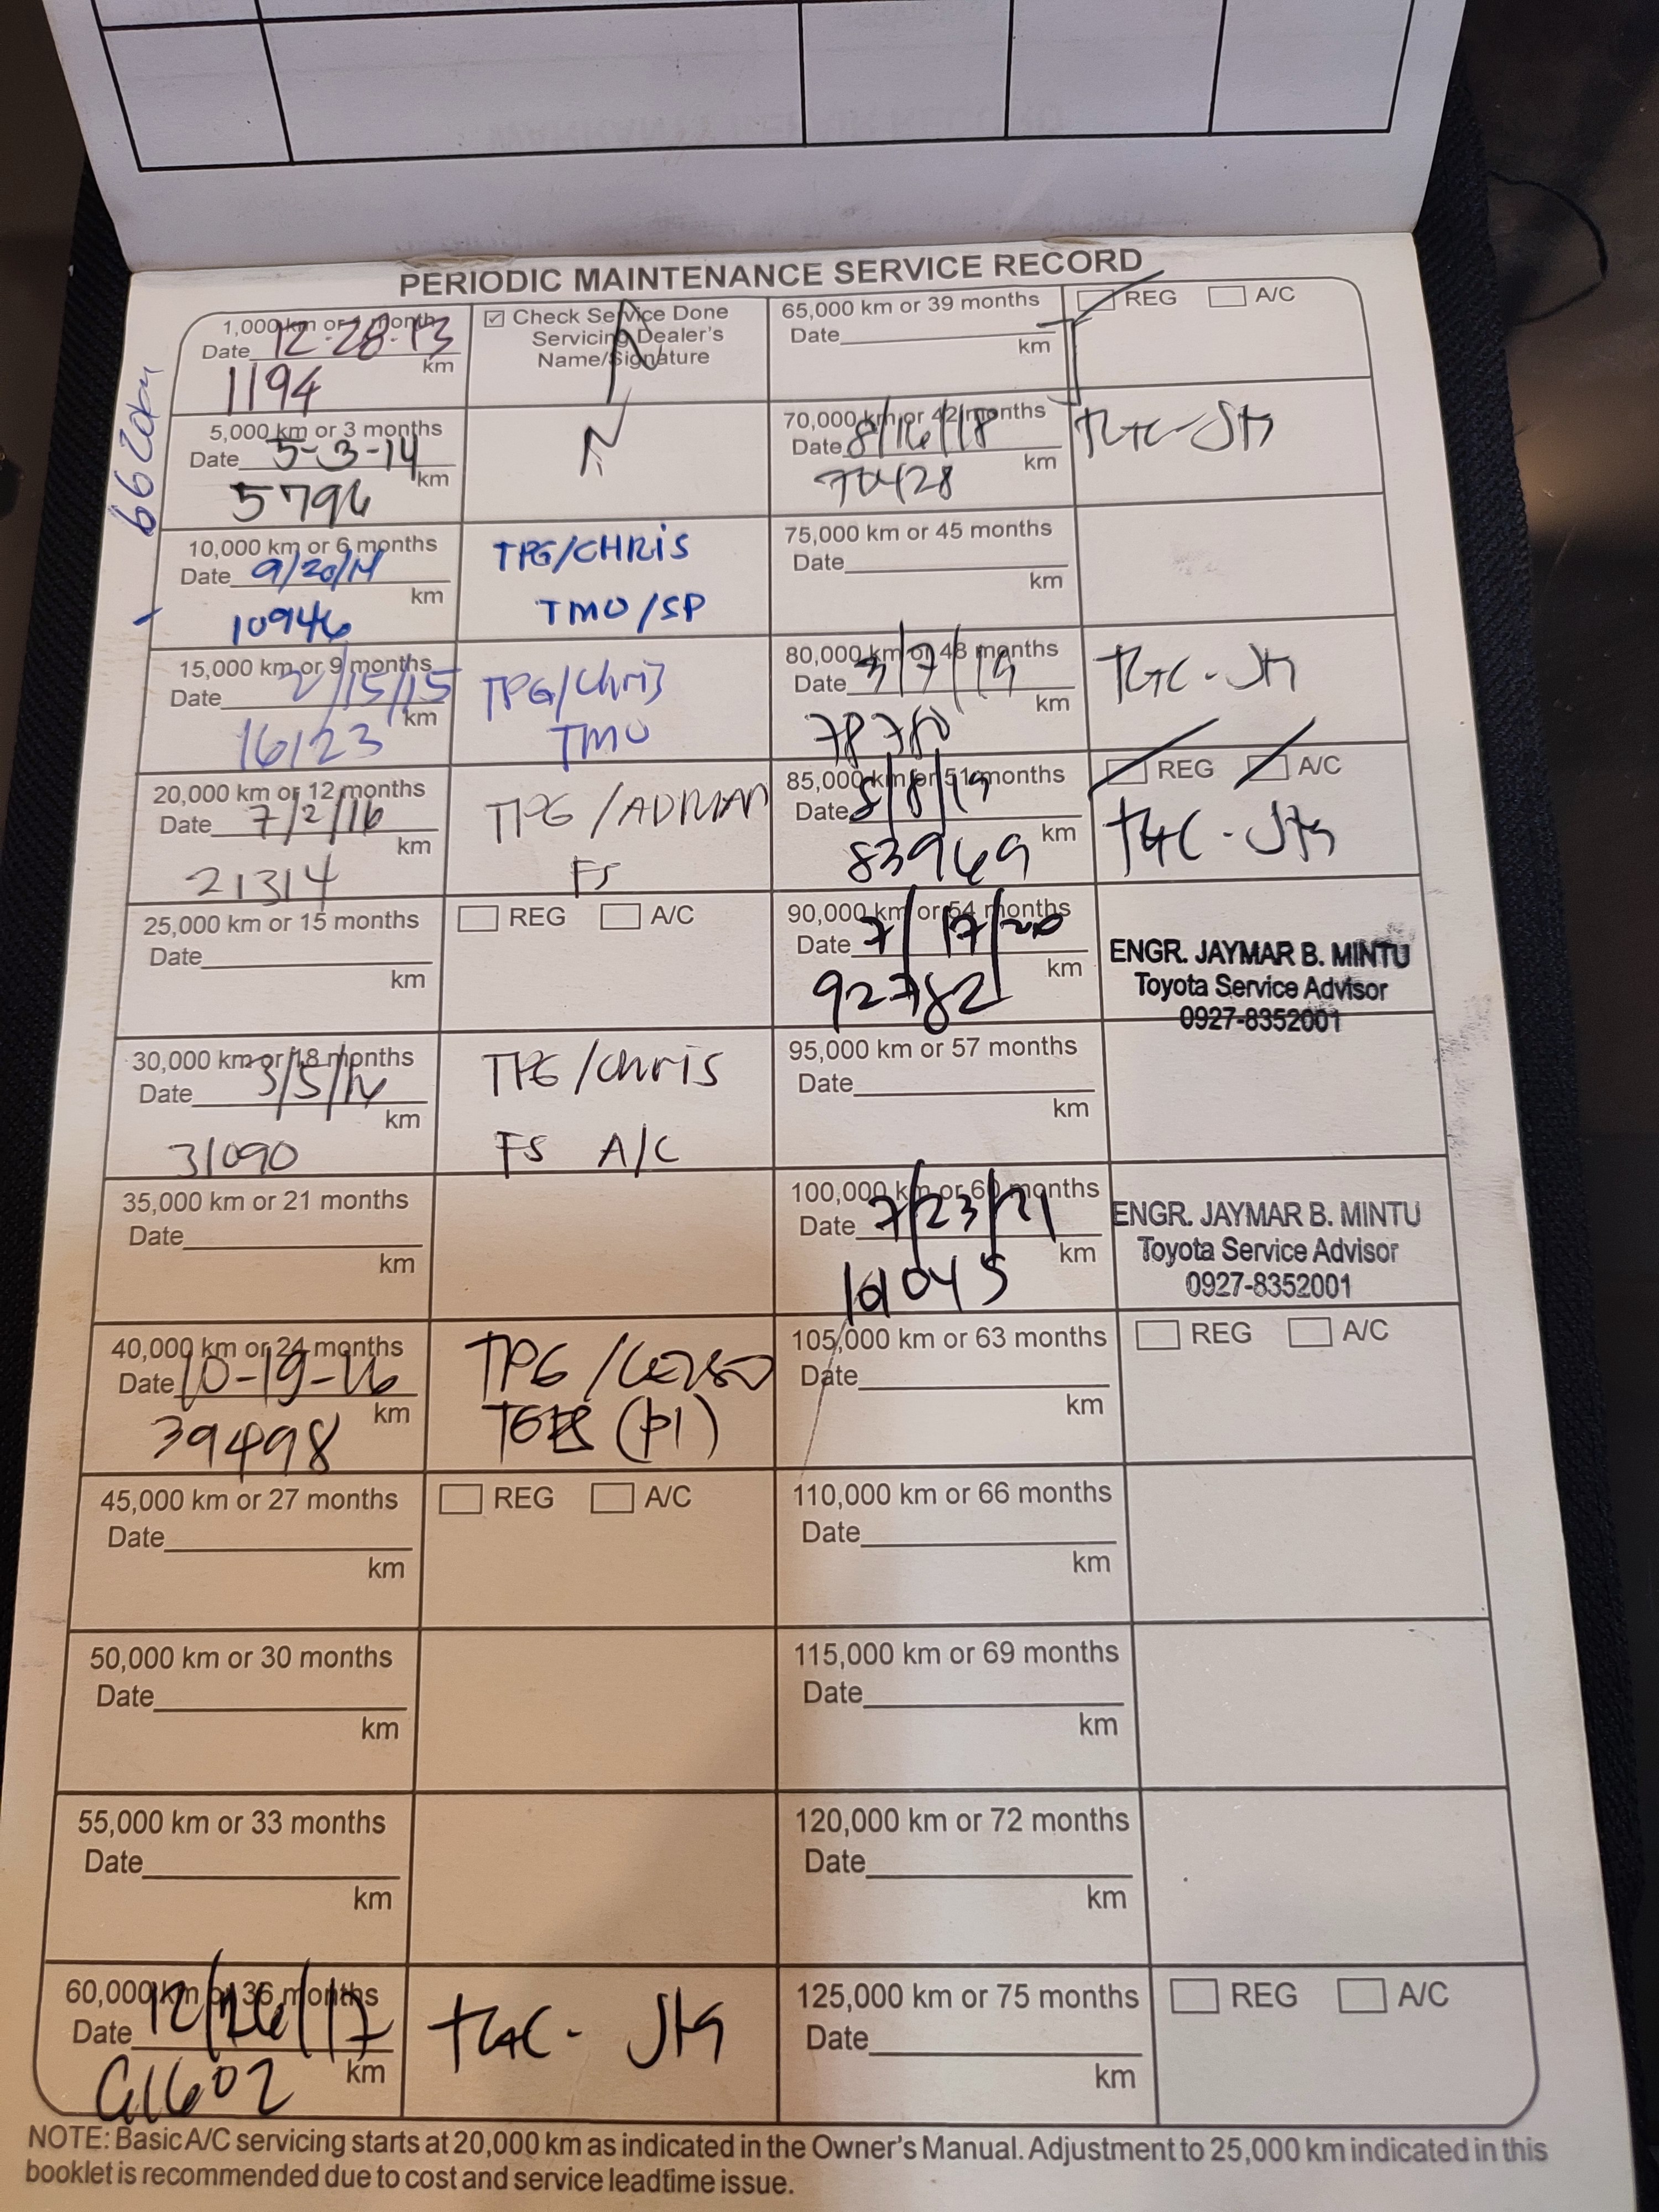 PERIODIC MAINTENANCE SERVICE RECORD
1,000 km or 1 month
Date 12-28-13
km
1194
☑ Check Service Done
Servicing Dealer's
Name/Signature
5,000 km or 3 months
Date 5-3-14
km
5796
6620km
10,000 km or 6 months
Date 9/20/14
km
10946
TPG/CHRIS
TMO/SP
15,000 km or 9 months
Date 2/15/15
km
16123
TPG/Chris
TMO
20,000 km or 12 months
Date 7/2/16
km
21314
TPG/ADRIAN
FS
25,000 km or 15 months
Date
km
REG A/C
30,000 km or 18 months
Date 3/5/16
km
31090
TPG/Chris
FS A/C
35,000 km or 21 months
Date
km
40,000 km or 24 months
Date 10-19-16
km
39498
TPG /
45,000 km or 27 months
Date
km
REG A/C
50,000 km or 30 months
Date
km
55,000 km or 33 months
Date
km
60,000 km or 36 months
Date 12/26/17
km
61602
65,000 km or 39 months
Date
km
REG A/C
70,000 km or 42 months
Date 8/16/18
km
70428
75,000 km or 45 months
Date
km
80,000 km or 48 months
Date 3/7/19
km
78780
85,000 km or 51 months
Date 8/8/19
km
83969
REG A/C
90,000 km or 54 months
Date 7/17/20
km
92782
ENGR. JAYMAR B. MINTU
Toyota Service Advisor
0927-8352001
95,000 km or 57 months
Date
km
100,000 km or 60 months
Date 7/23/21
km
101045
ENGR. JAYMAR B. MINTU
Toyota Service Advisor
0927-8352001
105,000 km or 63 months
Date
km
REG A/C
110,000 km or 66 months
Date
km
115,000 km or 69 months
Date
km
120,000 km or 72 months
Date
km
125,000 km or 75 months
Date
km
REG A/C
NOTE: Basic A/C servicing starts at 20,000 km as indicated in the Owner's Manual. Adjustment to 25,000 km indicated in this
booklet is recommended due to cost and service leadtime issue.